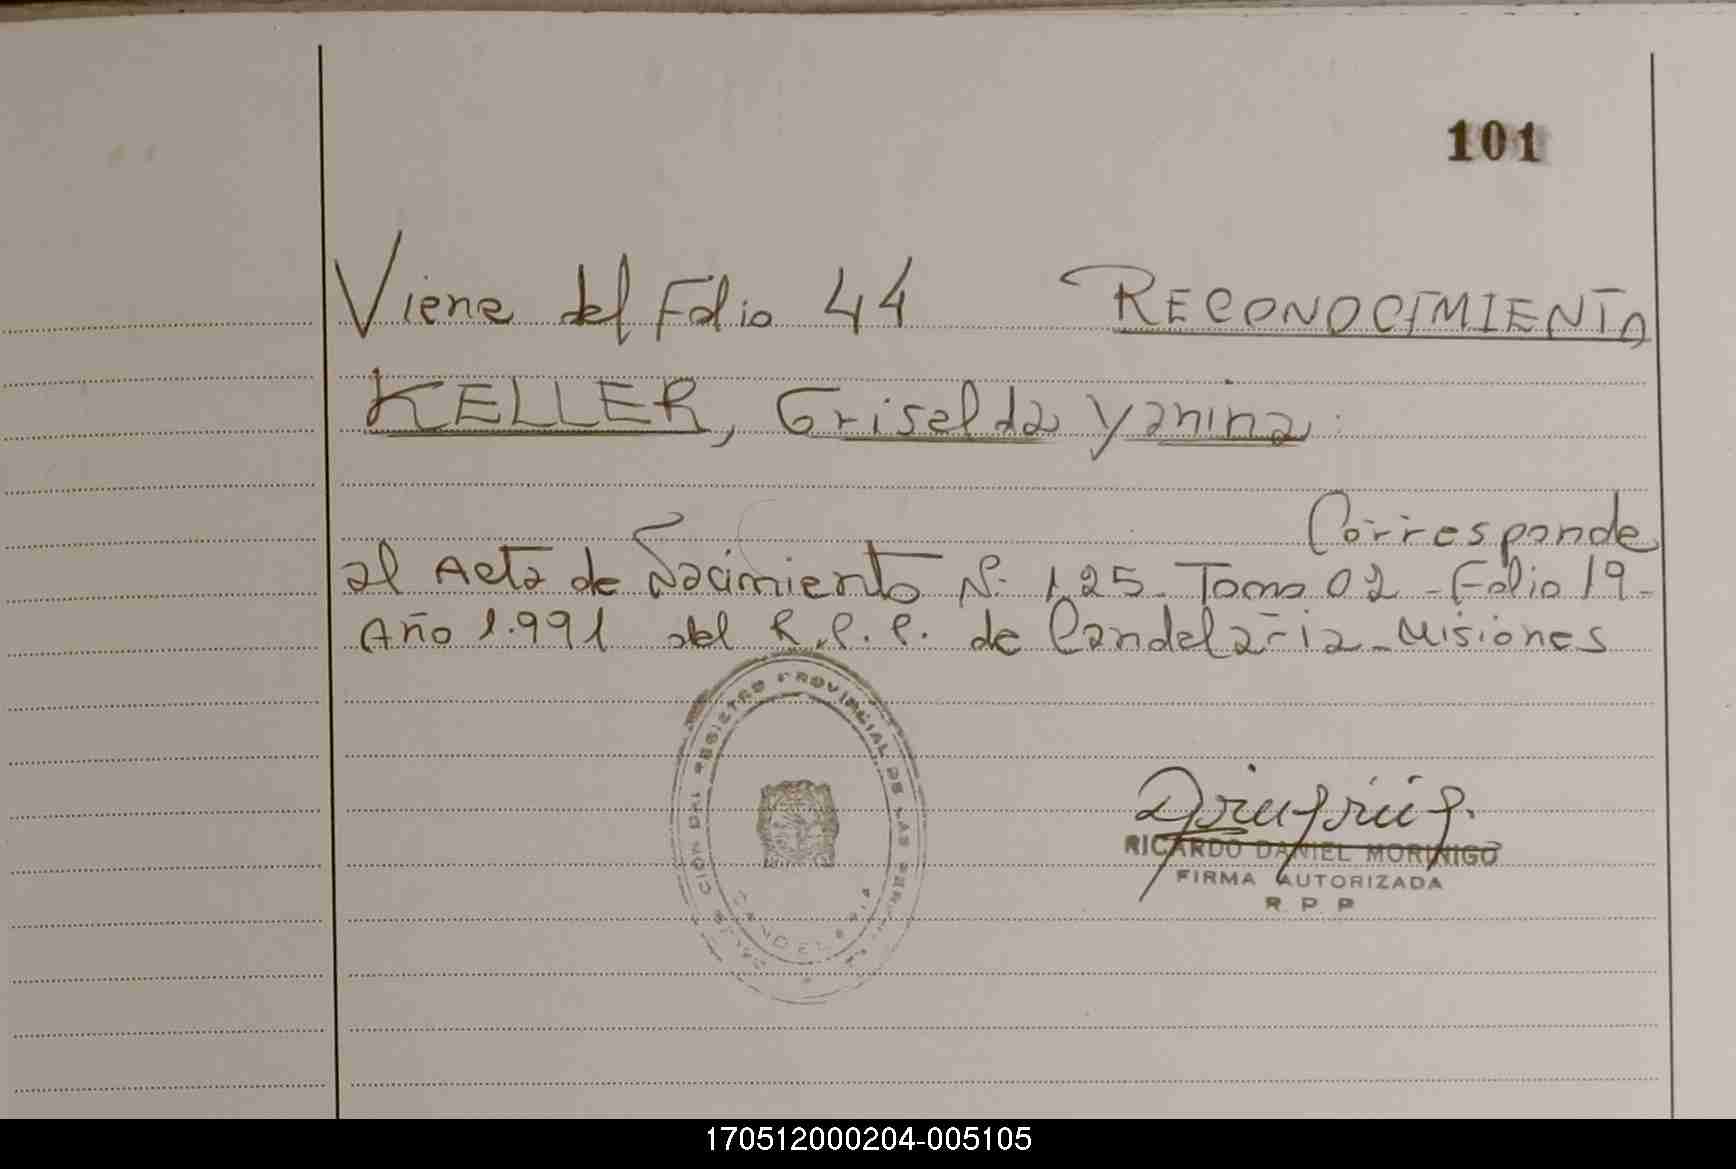 101
Viene del Folio 44 RECONOCIMIENTO
KELLER, Griselda Yanina.
Corresponde
al Acta de Nacimiento N. 125- Tomo 02 - Folio 19-
Año 1.991 del R.P.P. de Candelaria - Misiones
CION DEL REGISTRO PROVINCIAL DE LAS
CANDELARIA
RICARDO DANIEL MORINIGO
FIRMA AUTORIZADA
R. P. P.
170512000204-005105